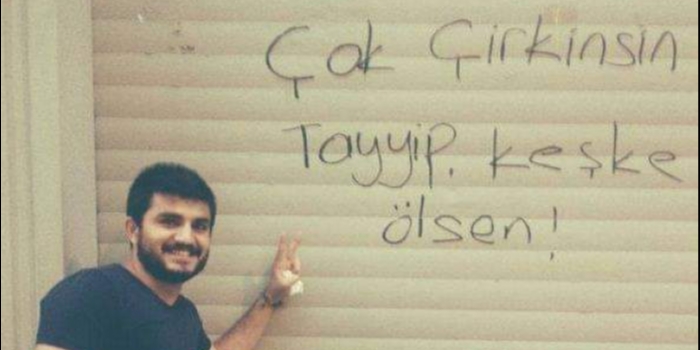 Çok Çirkinsin
Tayyip, keşke
ölsen!